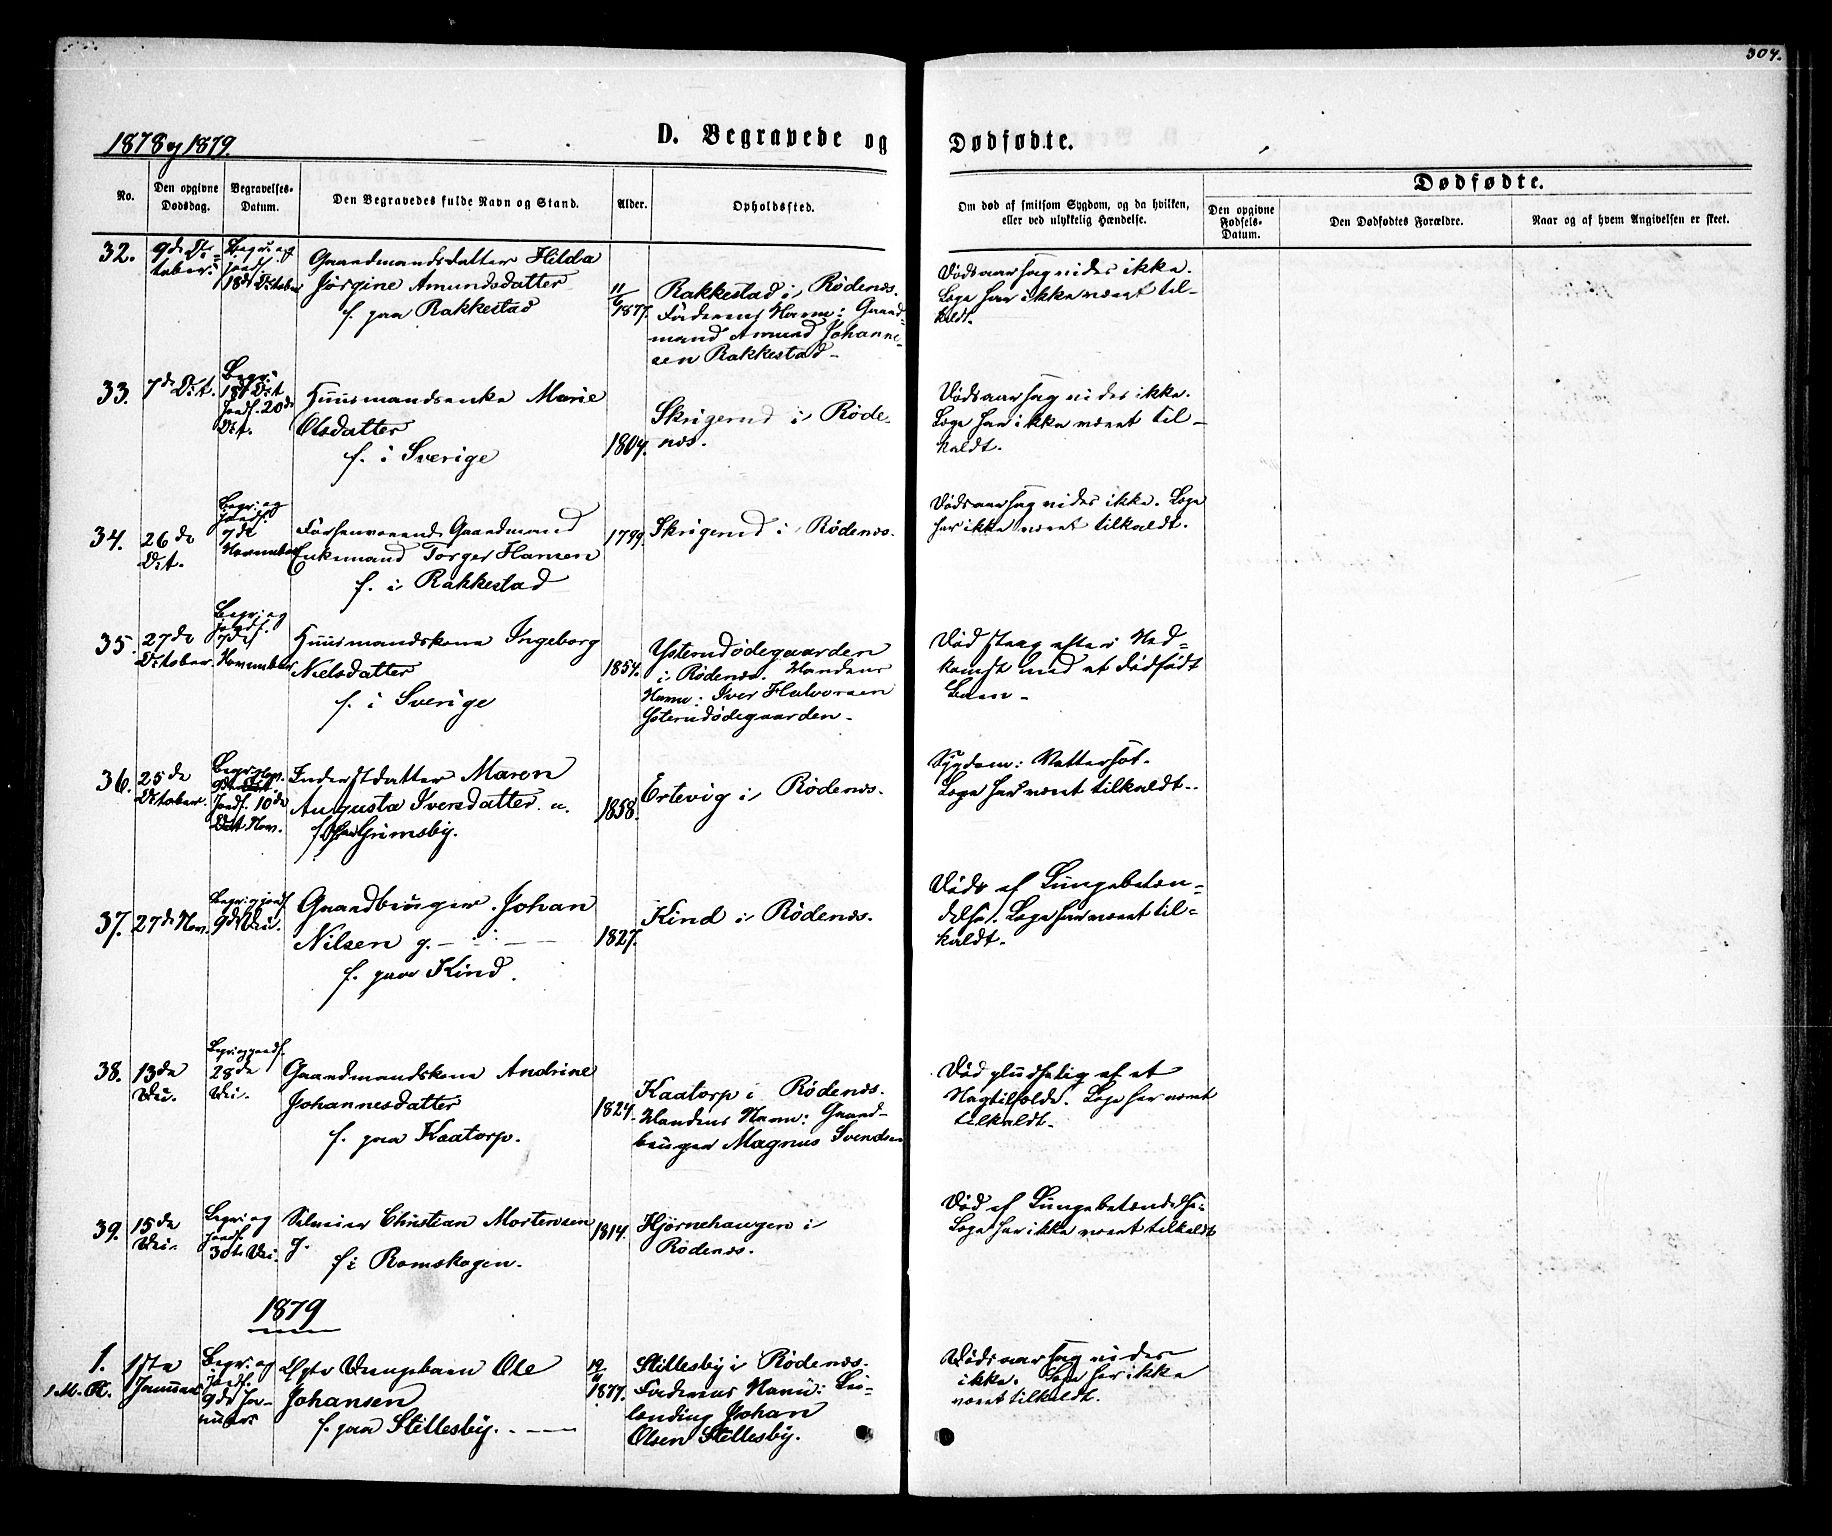 304.
1878 og 1879.
D. Begravede og Dødfødte.
No.
Den opgivne Dødsdag.
Begravelses-Datum.
Den Begravedes fulde Navn og Stand.
Alder.
Opholdssted.
Om død af smitsom Sygdom, og da hvilken, eller ved ulykkelig Hændelse.
Dødfødte.
Den opgivne Fødsels-Datum.
Den Dødfødtes Forældre.
Naar og af hvem Angivelsen er skeet.
32.
9de Oc-
tober.
Begr. og
Jordf.
18de October
Gaardmandsdatter Hilda
Jørgine Amundsdatter
f. paa Rakkestad
11/6 1877.
Rakkestad i Rødenæs.
Faderens Navn: Gaard-
mand Amund Johanne-
sen Rakkestad
Dødsaarsag vides ikke.
Læge har ikke været til-
kaldt.
33.
7de Oct.
Begr.
18de Oct
Jordf. 20de
Oct.
Huusmandsenke Marie
Olsdatter
f. i Sverige
1804.
Skrigerud i Røde-
næs.
Dødsaarsag vides ikke.
Læge har ikke været til-
kaldt.
34.
26de
Oct.
Begr. og
Jordf.
7de
November
Forhenværende Gaardmand
Enkemand Torger Hansen
f. i Rakkestad
1799.
Skrigerud i Rødenæs.
Dødsaarsag vides ikke. Læge
har ikke været tilkaldt.
35.
27de
October.
Begr. og
Jordf.
7de
November
Huusmandskone Ingeborg
Nielsdatter
f. i Sverige
1854.
Ysterudødegaarden
i Rødenæs. Mandens
Navn: Iver Halvorsen
Ysterudødegaarden
Død strax efter Ned-
komst med et dødfødt
Barn
36.
25de
October.
Begr. Nov.
9de Oct.
Jordf. 10de
Oct Nov.
Inderstdatter Maren
Augusta Iversdatter u.
f. paa Grimsby.
1858.
Ertevig i Rødenæs.
Sygdom: Vattersot.
Læge har været tilkaldt.
37.
27de Nov.
Begr. og Jordf.
9de Dec.
Gaardbruger Johan
Nilsen g.
f. paa Kind.
1827.
Kind i Rødenæs.
Døde af Lungebetæn-
delse. Læge har været til-
kaldt.
38.
13de
Dec.
Begr. og Jordf.
28de
Dec.
Gaardmandskone Andrine
Johannesdatter
f. paa Kaatorp.
1824.
Kaatorp i Rødenæs.
Mandens Navn: Gaard-
bruger Magnus Svendsen
Død pludselig af et
Læge har været
tilkaldt.
39.
15de
Dec.
Begr. og
Jordf.
30te Dec.
Christian Mortensen
g.
f. i Romskogen.
1814.
Hjørnehaugen i
Rødenæs.
Død af Lungebetændelse.
Læge har ikke været tilkaldt
1879
1.
1. M. K.
1ste
Januar
Begr. og
Jordf.
9de Ja-
nuar
Ægte Drengebarn Ole
Johansen
f. paa Stillesby.
1877.
Stillesby i Rødenæs.
Faderens Navn: Lei-
lænding Johan
Olsen Stillesby.
Dødsaarsag vides
ikke. Læge har ikke
været tilkaldt.